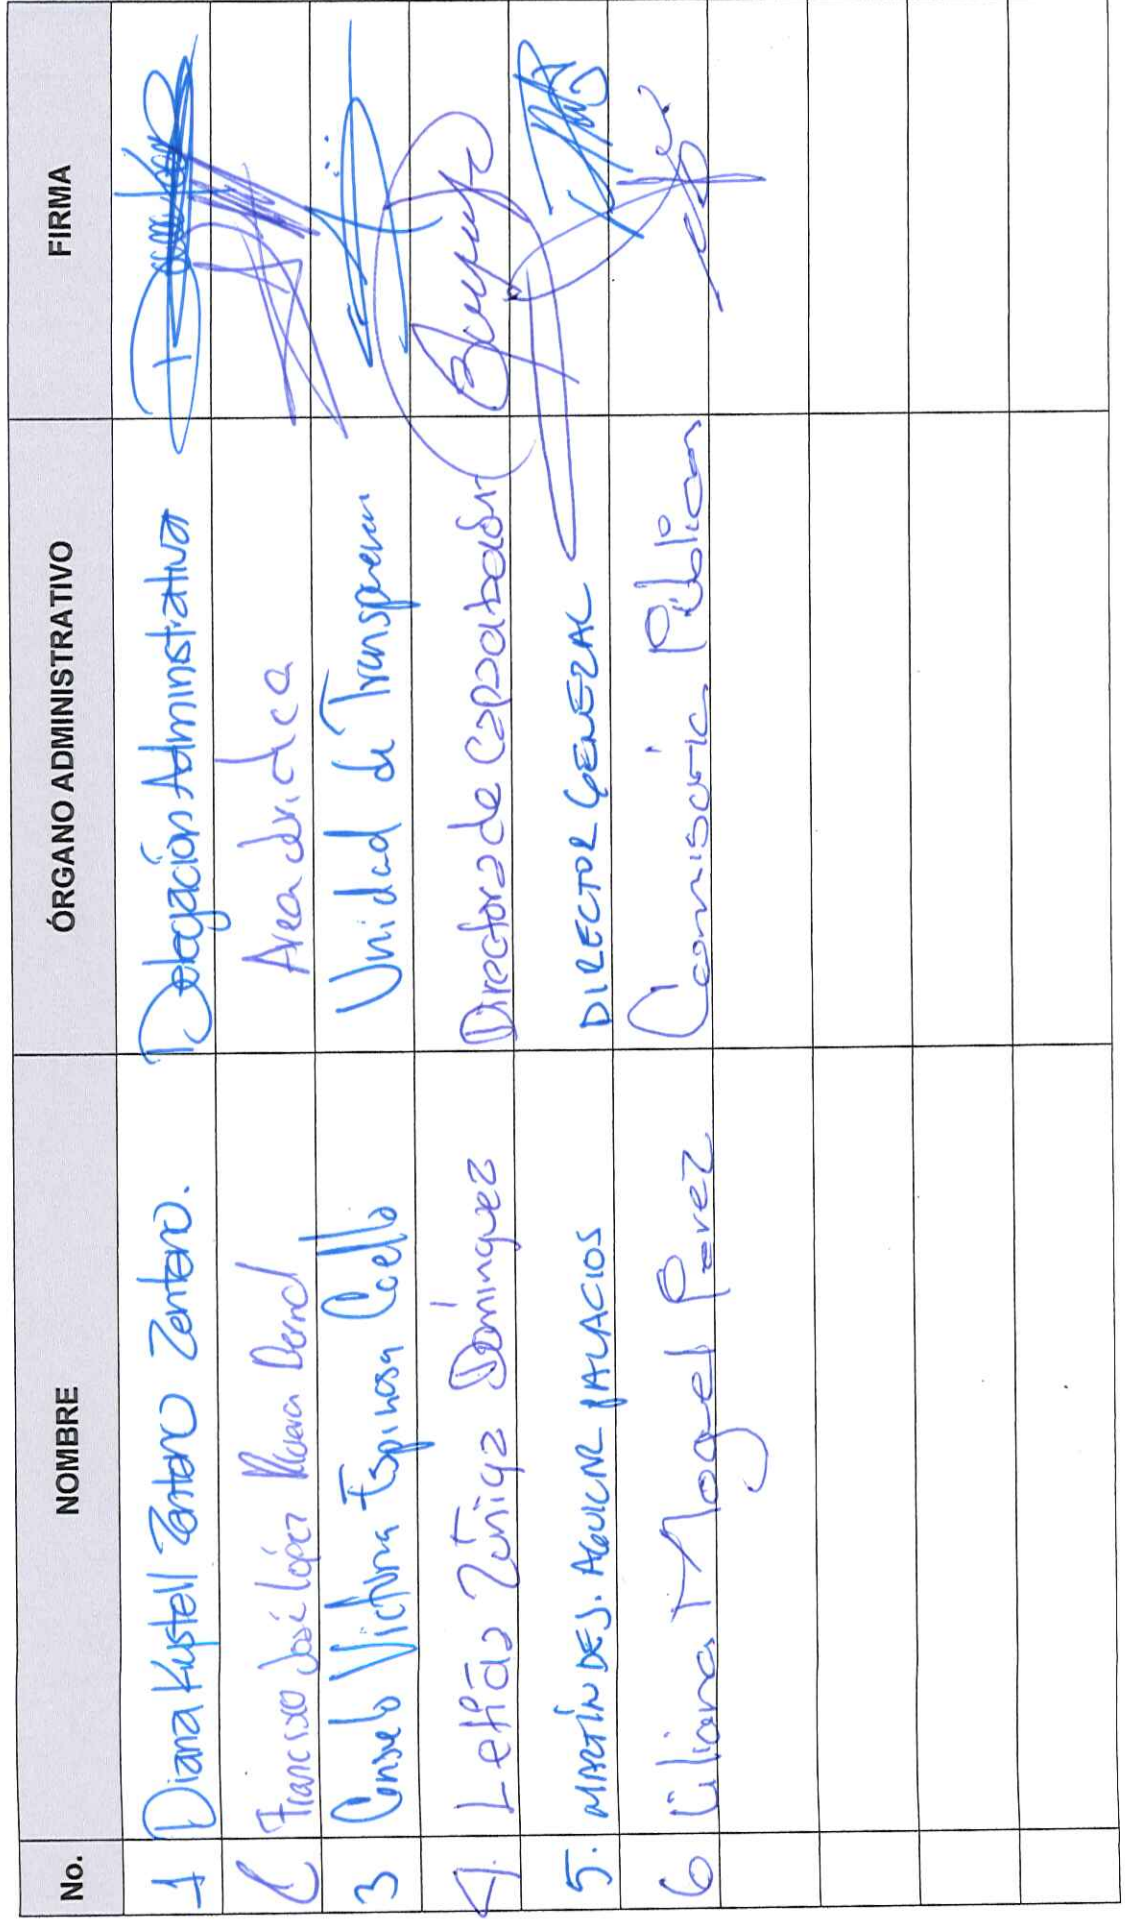 No. NOMBRE ÓRGANO ADMINISTRATIVO FIRMA
1 Diana Krystell Zenteno Zenteno. Delegación Administrativa
Francisco José López Rivera Area Jurídica
3 Consuelo Victoria Espinosa Coello Unidad de Transparencia
4. Leticia Zúñiga Domínguez Directora de Capacitación
5. MARTÍN DE J. AGUILAR PALACIOS DIRECTOR GENERAL
6 Liliana Moguel Perez Comisaría Pública